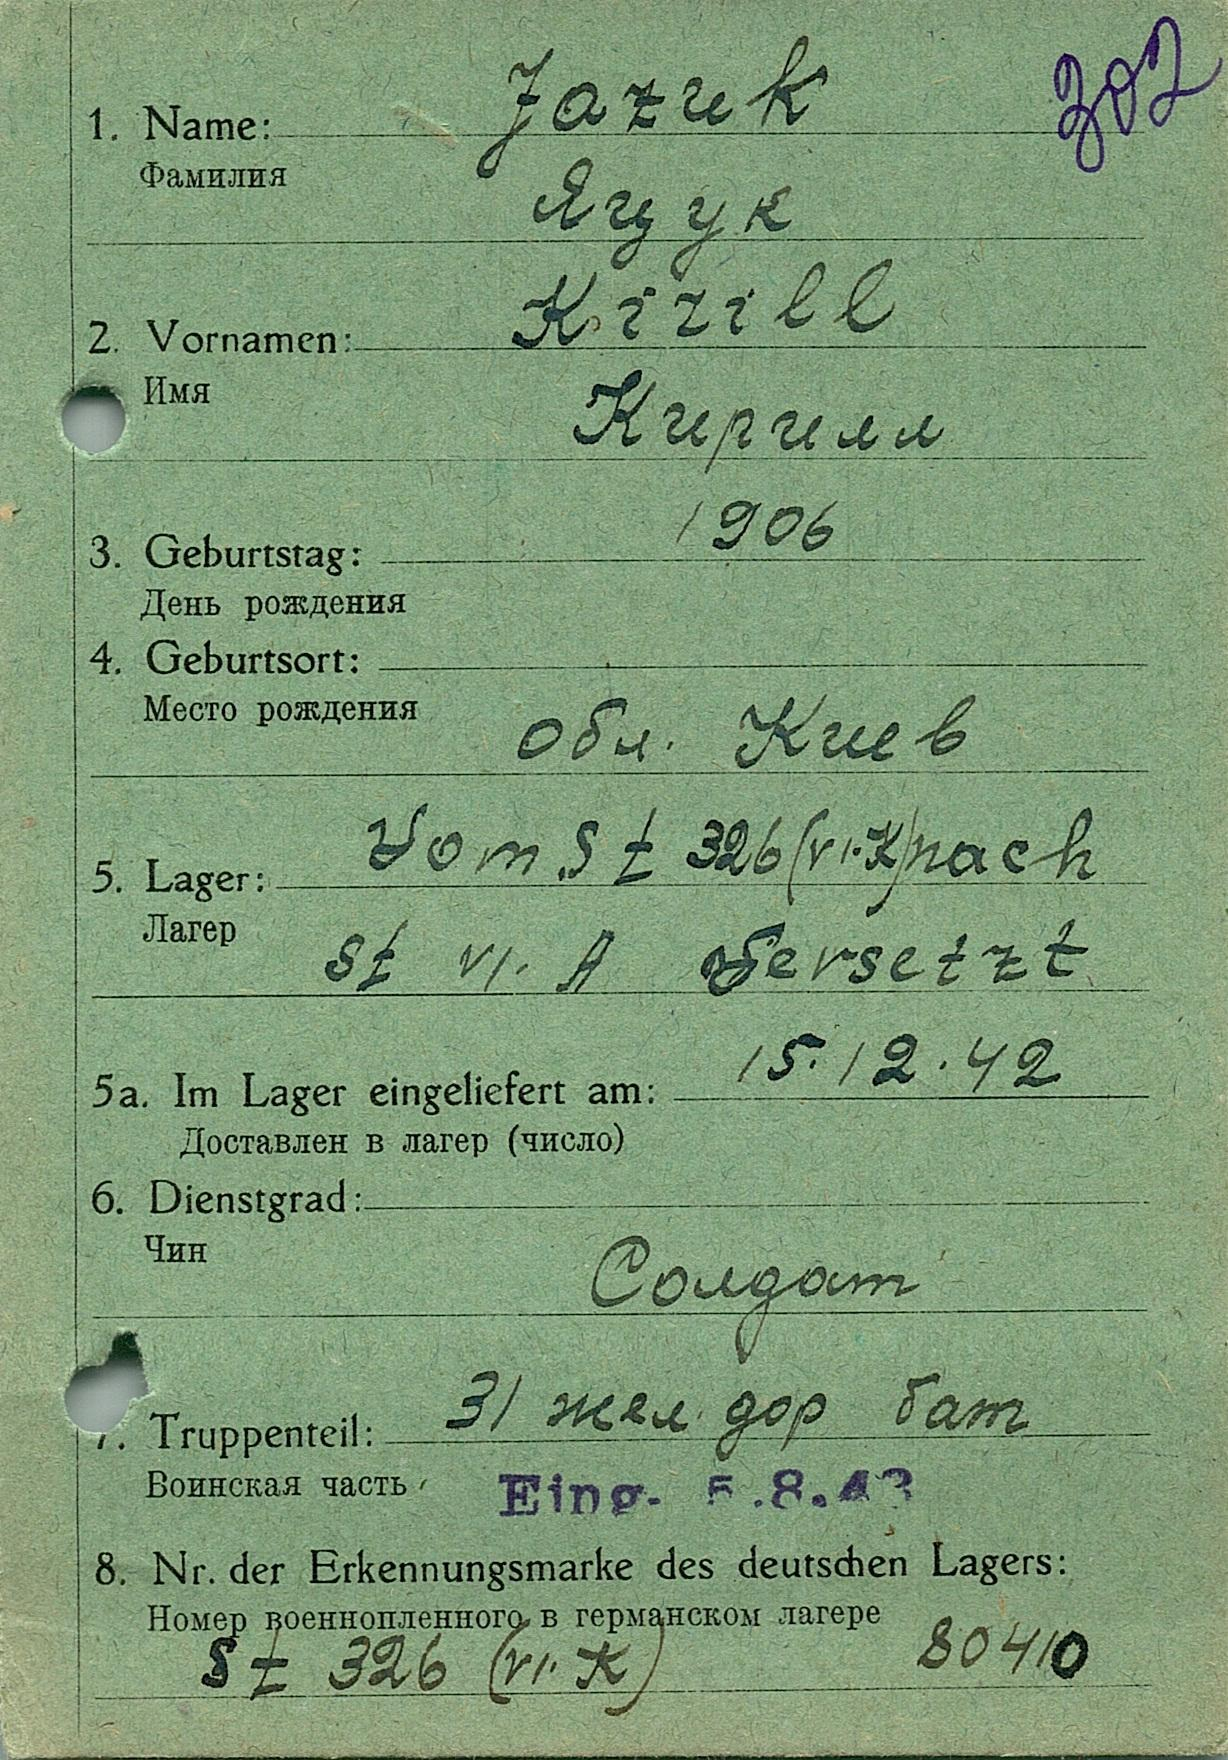 302
1. Name: Jazuk
Фамилия
Яцук
2. Vornamen: Kirill
Имя
Кирилл
3. Geburtstag: 1906
День рождения
4. Geburtsort:
Место рождения
обл. Киев
5. Lager: Vom St 326 (VI.K) nach
Лагер
St VI. A versetzt
5a. Im Lager eingeliefert am: 15.12.42
Доставлен в лагер (число)
6. Dienstgrad:
Чин
Солдат
7. Truppenteil: 31 жел. дор бат
Воинская часть
Eing. 5.8.43
8. Nr. der Erkennungsmarke des deutschen Lagers:
Номер военнопленного в германском лагере
St 326 (VI.K) 80410